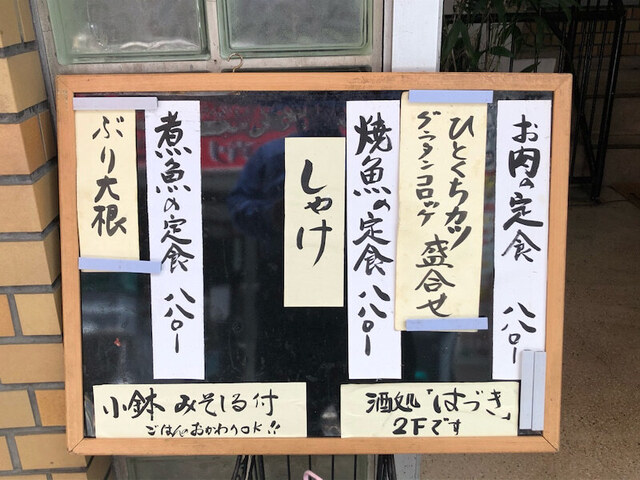 お肉の定食 八八〇ー
ひとくちカツ
グラタンコロッケ 盛合せ
焼魚の定食 八八〇ー
しゃけ
煮魚の定食 八八〇ー
ぶり大根
小鉢 みそしる付
ごはんおかわりOK!!
酒処「はづき」
2Fです